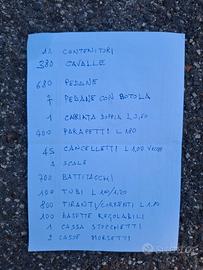 12 CONTENITORI
380 CAVALLE
680 PEDANE
7 PEDANE CON BOTOLA
1 CABINTA DOPPIA L 2,50
400 PARAPETTI L 180
45 CANCELLETTI L 100
2 SCALE
700 BATTITACCHI
100 TUBI L 100/120
800 TIRANTI/CORRENTI L 180
100 BASETTE REGOLABILI
1 CASSA SPECCHIETTI
2 CASSE MORSETTI
subito